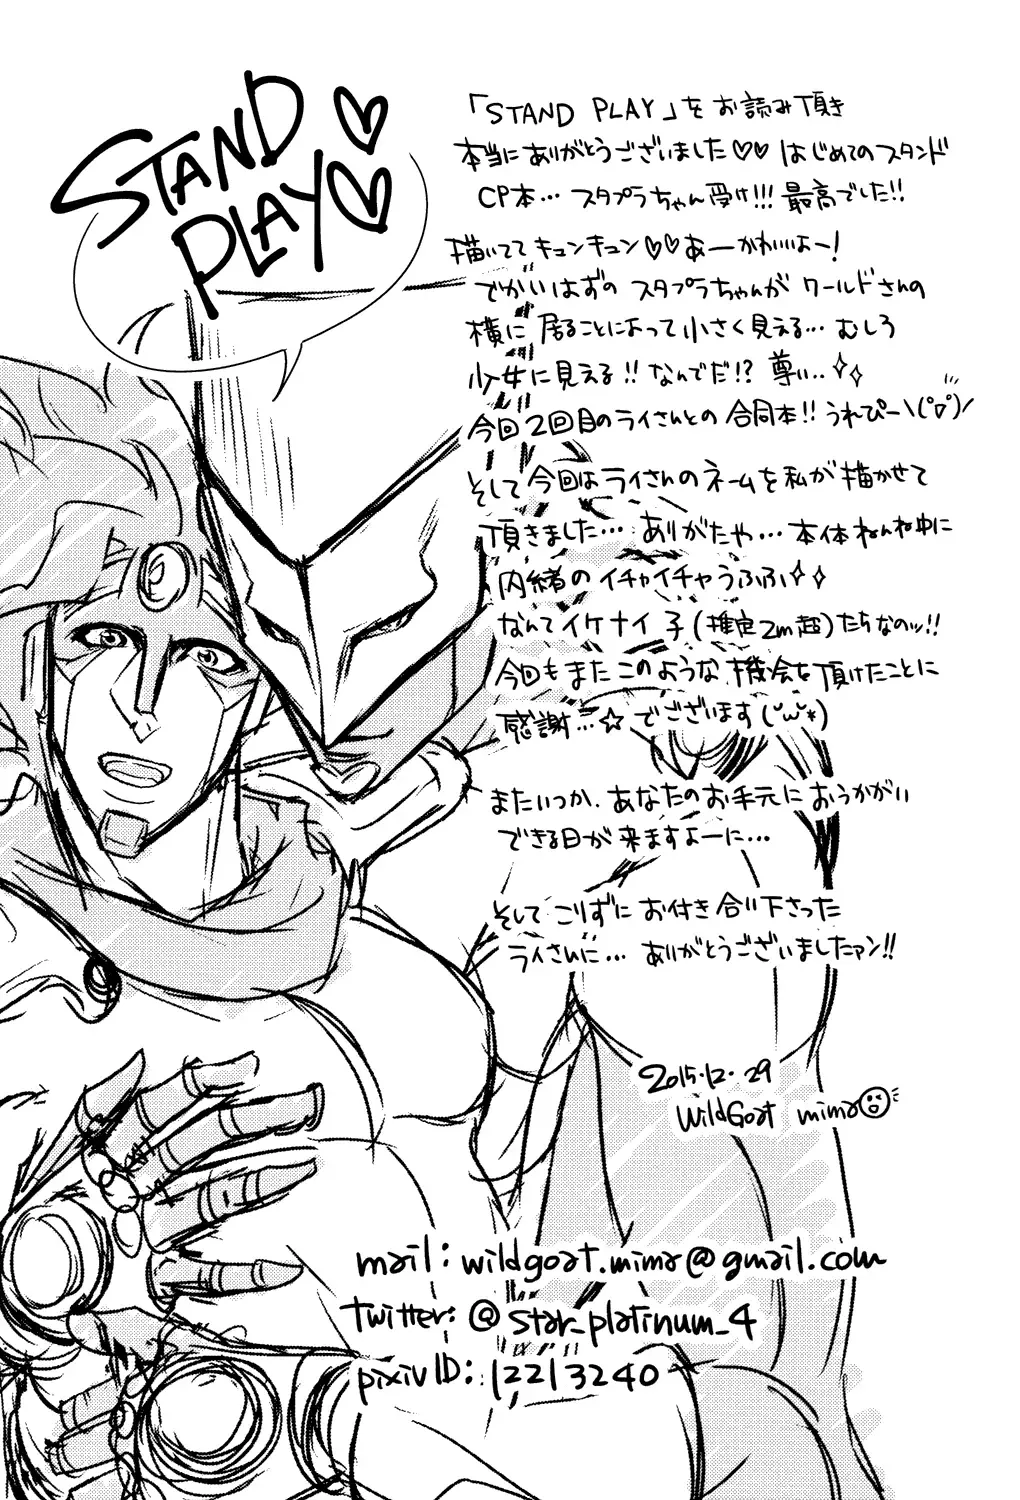 STAND
PLAY♡♡
「STAND PLAY」をお読み頂き
本当にありがとうございました♡♡ はじめてのスタンド
CP本… スタプラちゃん受け!!! 最高でした!!
描いてて キュンキュン♡♡ あーかわいいよー!
でかいはずの スタプラちゃんが ワールドさんの
横に 居ることによって 小さく見える… むしろ
少女に見える!! なんでだ!? 尊い..✧✧
今回2回目のライさんとの 合同本!! うれぴー\(°▽°)/
そして今回はライさんのネームを私が描かせて
頂きました… ありがたや… 本体ねんね中に
内緒の イチャイチャうふふ✧✧
なんてイケナイ 子(推定2m超)たちなのッ!!
今回もまたこのような 機会を頂けたことに
感謝…☆ でございます(˘ω˘*)
またいつか、あなたのお手元におうかがい
できる日が 来ますよーに…
そして こりずに お付き合い下さった
ライさんに… ありがとうございましたァン!!
2015.12.29
WildGoat mima
mail: wildgoat.mima@gmail.com
twitter: @star_platinum_4
pixivID: 12213240